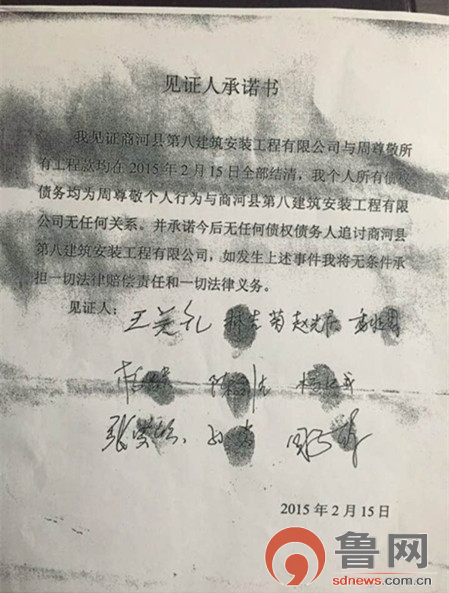 见证人承诺书
我见证商河县第八建筑安装工程有限公司与周尊敬所
有工程款均在2015年2月15日全部结清，我个人所有债权
债务均为周尊敬个人行为与商河县第八建筑安装工程有限
公司无任何关系。并承诺今后无任何债权债务人追讨商河县
第八建筑安装工程有限公司，如发生上述事件我将无条件承
担一切法律赔偿责任和一切法律义务。
见证人：
王美礼 赵光辰
2015年2月15日
鲁网
sdnews.com.cn